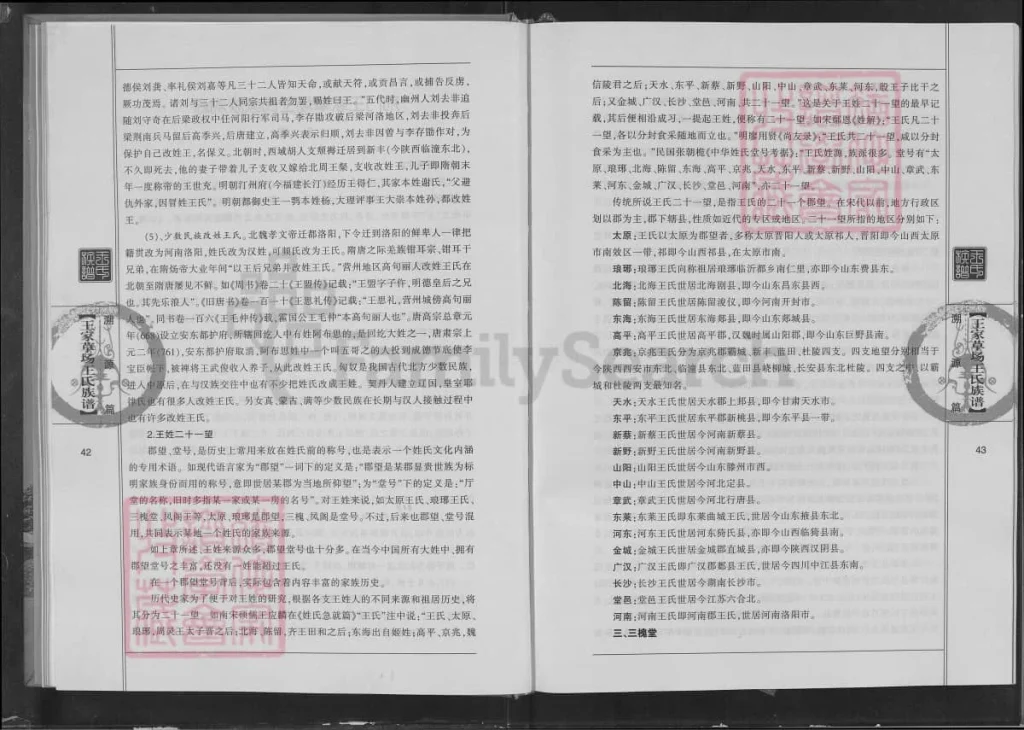 德侯刘龚、率礼侯刘嘉等凡三十二人皆知天命,或献天符,或贡昌言,或捕告反虏,
厥功茂焉。诸刘与三十二人同宗共祖者勿罢,赐姓曰王。”五代时,幽州人刘去非追
随刘守奇在后梁政权中任河阳行军司马,李存勖攻破后梁河洛地区,刘去非投奔后
梁荆南兵马留后高季兴,后唐建立,高季兴表示归顺,刘去非因曾与李存勖作对,为
保护自己改姓王,名保义。北朝时,西域胡人支颓耨迁居到新丰(今陕西临潼东北),
不久即死去,他的妻子带着儿子支收又嫁给北周王粲,支收改姓王,儿子即隋朝末
年一度称帝的王世充。明朝汀州府(今福建长汀)经历王得仁,其家本姓谢氏,“父避
仇外家,因冒姓王氏”。明朝都御史王一鹗本姓杨,大理评事王大崇本姓孙,都改姓
王。
(5)、少数民族改姓王氏。北魏孝文帝迁都洛阳,下令迁到洛阳的鲜卑人一律把
籍贯改为河南洛阳,姓氏改为汉姓,可频氏改为王氏。隋唐之际羌族钳耳宗、钳耳干
兄弟,在隋炀帝大业年间“以王后兄弟并改姓王氏。”营州地区高句丽人改姓王氏在
北朝至隋唐屡见不鲜。如《周书》卷二十《王盟传》记载:“王盟字子仵,明德皇后之兄
也。其先乐浪人”。《旧唐书》卷一百一十《王思礼传》记载:“王思礼,营州城傍高句丽
人也”。同书卷一百六《王毛仲传》载,霍国公王毛仲“本高句丽人也”。唐高宗总章元
年(668)设立安东都护府,所辖回纥人中有姓阿布思的,是回纥大姓之一,唐肃宗上
元二年(761),安东都护府取消,阿布思姓中一个叫五哥之的人投到成德节底使李
宝臣帐下,被裨将王武俊收人养子,从此改姓王氏。匈奴是我国古代北方少数民族,
进人中原后,在与汉族交往中也有不少把姓氏改成王姓。契丹人建立辽国,皇室耶
律氏也有很多人改姓王氏。另女真、蒙古、满等少数民族在长期与汉人接触过程中
也有许多改姓王氏。
2.王姓二十一望
郡望、堂号,是历史上常用来放在姓氏前的称号,也是表示一个姓氏文化内涵
的专用术语。如现代语言家为“郡望”一词下的定义是:“郡望是某郡显贵世族为标
明家族身份而用的称号,意即世居某郡为当地所仰望”;为“堂号”下的定义是:“厅
堂的名称,旧时多指某一家或某一房的名号”。对王姓来说,如太原王氏、琅琊王氏、
三槐堂、凤阁王等,太原、琅琊是郡望,三槐、凤阁是堂号。不过,后来也郡望、堂号混
用,共同表示某地一个姓氏的家族来源。
如上章所述,王姓来源众多,郡望堂号也十分多。在当今中国所有大姓中,拥有
郡望堂号之丰富,还没有一姓能超过王氏。
在一个郡望堂号背后,实际包含着内容丰富的家族历史。
历代史家为了便于对王姓的研究,根据各支王姓人的不同来源和祖居历史,将
其分为二十一望。如南宋硕儒王应麟在《姓氏急就篇》“王氏”注中说:“王氏、太原、
琅琊,周灵王太子晋之后;北海、陈留,齐王田和之后;东海出自姬姓;高平、京兆,魏
王氏族谱
溯源篇
【王家草场王氏族谱】
42
信陵君之后;天水、东平、新蔡、新野、山阳、中山、章武、东莱、河东、殷王子比干之
后;又金城、广汉、长沙、堂邑、河南、共二十一望。”这是关于王姓二十一望的最早记
载,其后便相沿成习,一提起王姓,便称有二十一望。如宋邵恩《姓解》:“王氏凡二十
一望,各以分封食采随地而立也。”明廖用贤《尚友录》:“王氏共二十一望,咸以分封
食采为主也。”民国张朝栀《中华姓氏堂号考据》:“王氏姓源,族派很多。堂号有“太
原、琅琊、北海、陈留、东海、高平、京兆、天水、东平、新蔡、新野、山阳、中山、章武、东
莱、河东、金城、广汉、长沙、堂邑、河南”,亦二十一望。
传统所说王氏二十一望,是指王氏的二十一个郡望。在宋代以前,地方行政区
划以郡为主,郡下辖县,性质如近代的专区或地区,二十一望所指的地区分别如下:
太原:王氏以太原为郡望者,多称太原晋阳人或太原祁人,晋阳即今山西太原
市南效区一带,祁即今山西祁县,在太原市南。
琅琊:琅琊王氏向称祖居琅琊临沂都乡南仁里,亦即今山东费县东。
北海:北海王氏世居北海剧县,即今山东昌东县西。
陈留:陈留王氏世居陈留浚仪,即今河南开封市。
东海:东海王氏世居东海郯县,即今山东郯城县。
高平:高平王氏世居高平郡,汉魏时属山阳郡,即今山东巨野县南。
京兆:京兆王氏分为京兆郡霸城、新丰、蓝田、杜陵四支。四支地望分别相当于
今陕西西安市东北、临潼县东北、蓝田县峣柳城、长安县东北杜陵。四支之中,以霸
城和杜陵两支最知名。
天水:天水王氏世居天水郡上邽县,即今甘肃天水市。
东平:东平王氏世居东平郡新桃县,即今东平县一带。
新蔡:新蔡王氏世居今河南新蔡县。
新野:新野王氏世居今河南新野县。
山阳:山阳王氏世居今山东滕州市西。
中山:中山王氏世居今河北定县。
章武:章武王氏世居今河北行唐县。
东莱:东莱王氏即东莱曲城王氏,世居今山东掖县东北。
河东:河东王氏世居河东猗氏县,亦即今山西临猗县南。
金城:金城王氏世居金城郡直城县,亦即今陕西汉阴县。
广汉:广汉王氏即广汉郡郪县王氏,世居今四川中江县东南。
长沙:长沙王氏世居今湖南长沙市。
堂邑:堂邑王氏世居今江苏六合北。
河南:河南王氏即河南郡王氏,世居河南洛阳市。
三、三槐堂
王氏族谱
溯源篇
【王家草场王氏族谱】
43
FamilySearch